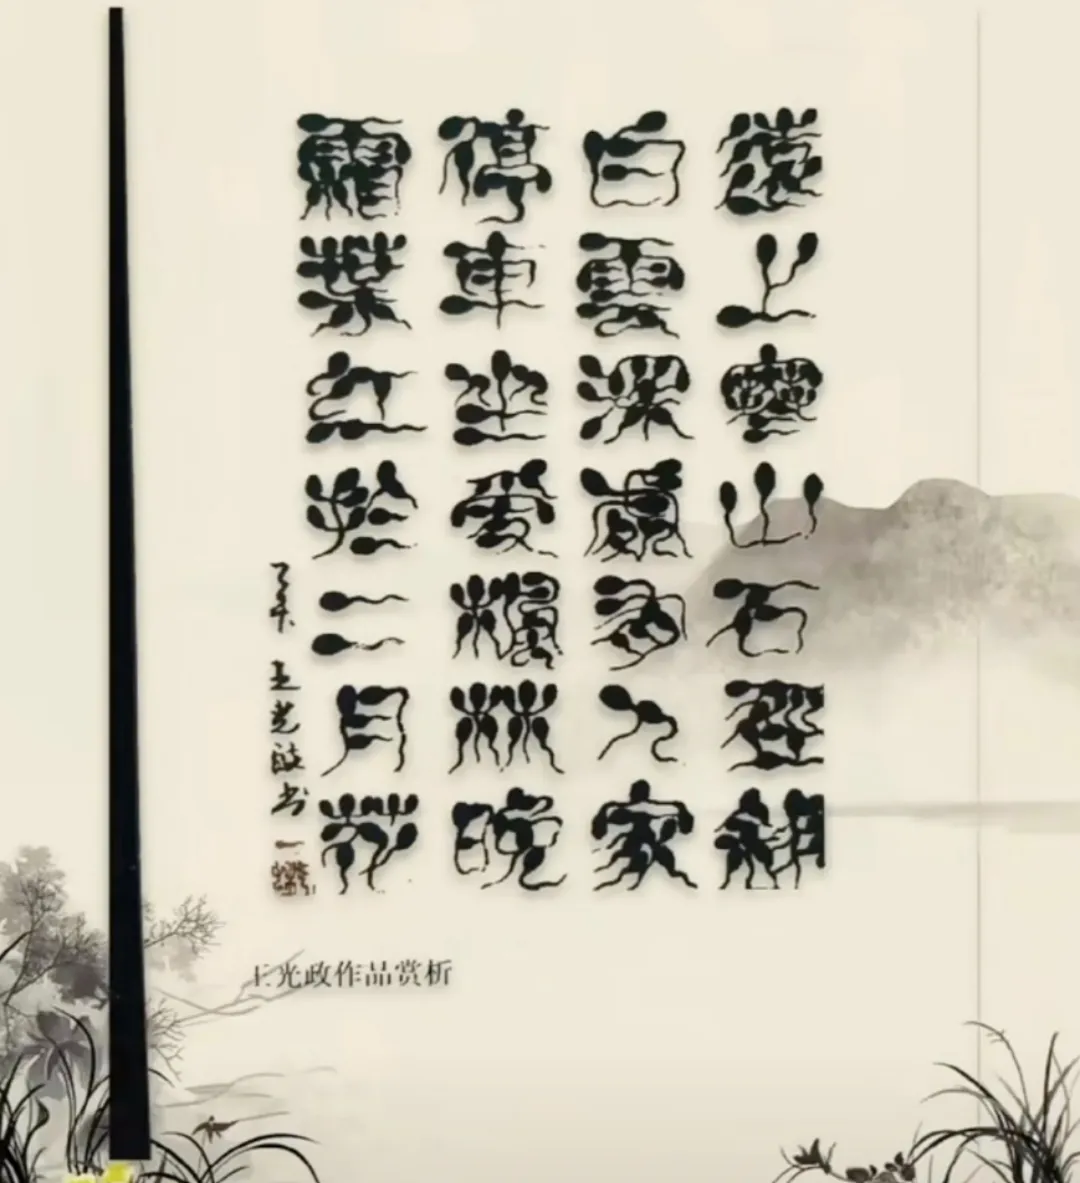 遠上寒山石徑斜
白雲深處有人家
停車坐愛楓林晚
霜葉紅於二月花
王光政书
王光政作品赏析